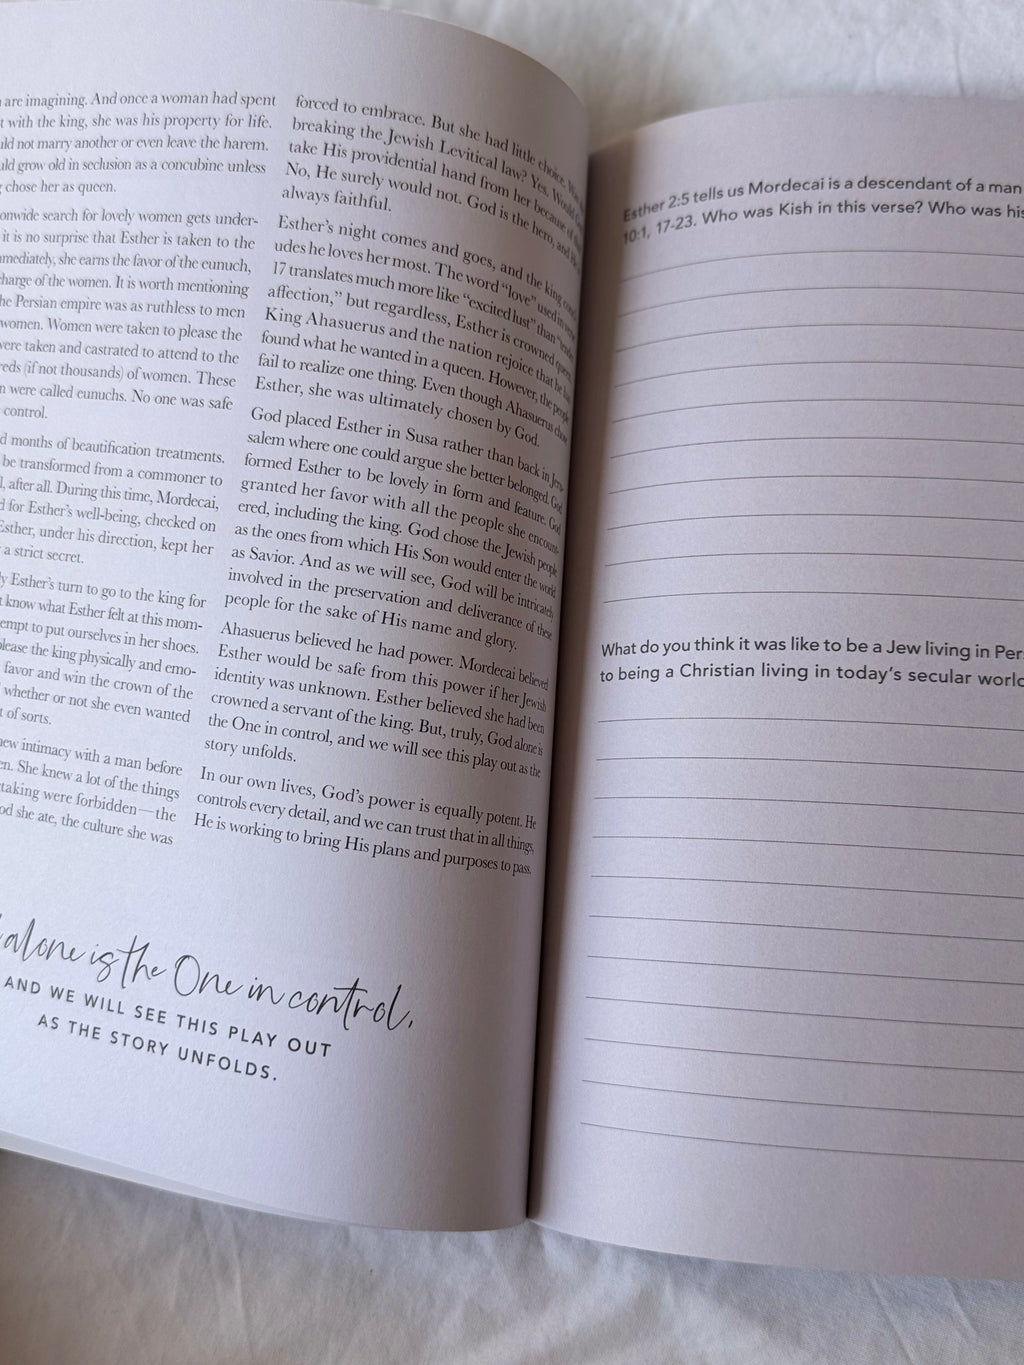 are imagining. And once a woman had spent
with the king, she was his property for life.
not marry another or even leave the harem.
grow old in seclusion as a concubine unless
chose her as queen.
search for lovely women gets under-
it is no surprise that Esther is taken to the
she earns the favor of the eunuch,
of the women. It is worth mentioning
Persian empire was as ruthless to men
women. Women were taken to please the
were taken and castrated to attend to the
(if not thousands) of women. These
were called eunuchs. No one was safe
control.
months of beautification treatments.
be transformed from a commoner to
after all. During this time, Mordecai,
for Esther's well-being, checked on
Esther, under his direction, kept her
a strict secret.
Esther's turn to go to the king for
know what Esther felt at this mom-
to put ourselves in her shoes.
please the king physically and emo-
favor and win the crown of the
whether or not she even wanted
of sorts.
intimacy with a man before
She knew a lot of the things
taking were forbidden—the
she ate, the culture she was
forced to embrace. But she had little choice.
breaking the Jewish Levitical law? Yes. Would
take His providential hand from her because of
No, He surely would not. God is the hero, and
always faithful.
Esther's night comes and goes, and the king
udes he loves her most. The word "love" used in
17 translates much more like "excited lust" than
affection," but regardless, Esther is crowned queen.
King Ahasuerus and the nation rejoice that he has
found what he wanted in a queen. However, the people
fail to realize one thing. Even though Ahasuerus chose
Esther, she was ultimately chosen by God.
God placed Esther in Susa rather than back in Jeru-
salem where one could argue she better belonged. God
formed Esther to be lovely in form and feature. God
granted her favor with all the people she encount-
ered, including the king. God chose the Jewish people
as the ones from which His Son would enter the world
as Savior. And as we will see, God will be intricately
involved in the preservation and deliverance of these
people for the sake of His name and glory.
Ahasuerus believed he had power. Mordecai believed
Esther would be safe from this power if her Jewish
identity was unknown. Esther believed she had been
crowned a servant of the king. But, truly, God alone is
the One in control, and we will see this play out as the
story unfolds.
In our own lives, God's power is equally potent. He
controls every detail, and we can trust that in all things,
He is working to bring His plans and purposes to pass.
alone is the One in control,
AND WE WILL SEE THIS PLAY OUT
AS THE STORY UNFOLDS.
Esther 2:5 tells us Mordecai is a descendant of a man
10:1, 17-23. Who was Kish in this verse? Who was his
What do you think it was like to be a Jew living in
to being a Christian living in today's secular